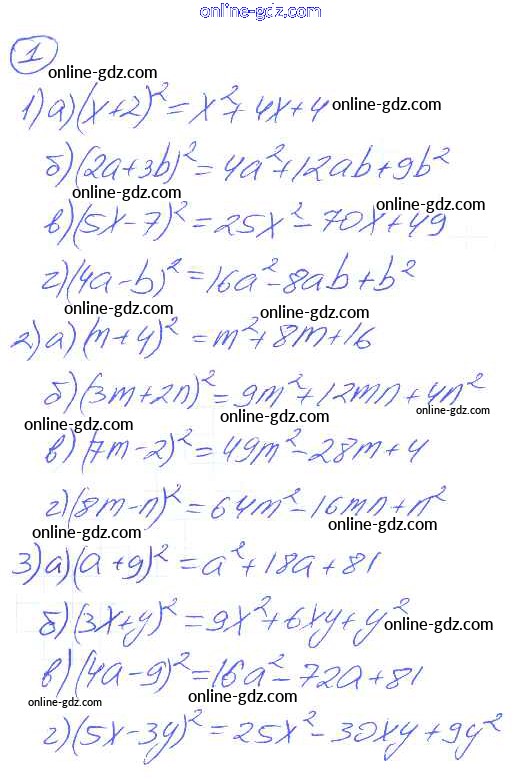 online-gdz.com
1
online-gdz.com
1) а) (x+2)² = x²+4x+4
online-gdz.com online-gdz.com
б) (2a+3b)² = 4a²+12ab+9b²
online-gdz.com online-gdz.com
в) (5x-7)² = 25x²-70x+49
online-gdz.com online-gdz.com
г) (4a-b)² = 16a²-8ab+b²
online-gdz.com online-gdz.com
2) а) (m+4)² = m²+8m+16
online-gdz.com online-gdz.com
б) (3m+2n)² = 9m²+12mn+4n²
online-gdz.com online-gdz.com online-gdz.com
в) (7m-2)² = 49m²-28m+4
г) (8m-n)² = 64m²-16mn+n²
online-gdz.com online-gdz.com
3) а) (a+9)² = a²+18a+81
б) (3x+y)² = 9x²+6xy+y²
online-gdz.com online-gdz.com
в) (4a-9)² = 16a²-72a+81
online-gdz.com online-gdz.com online-gdz.com
г) (5x-3y)² = 25x²-30xy+9y²